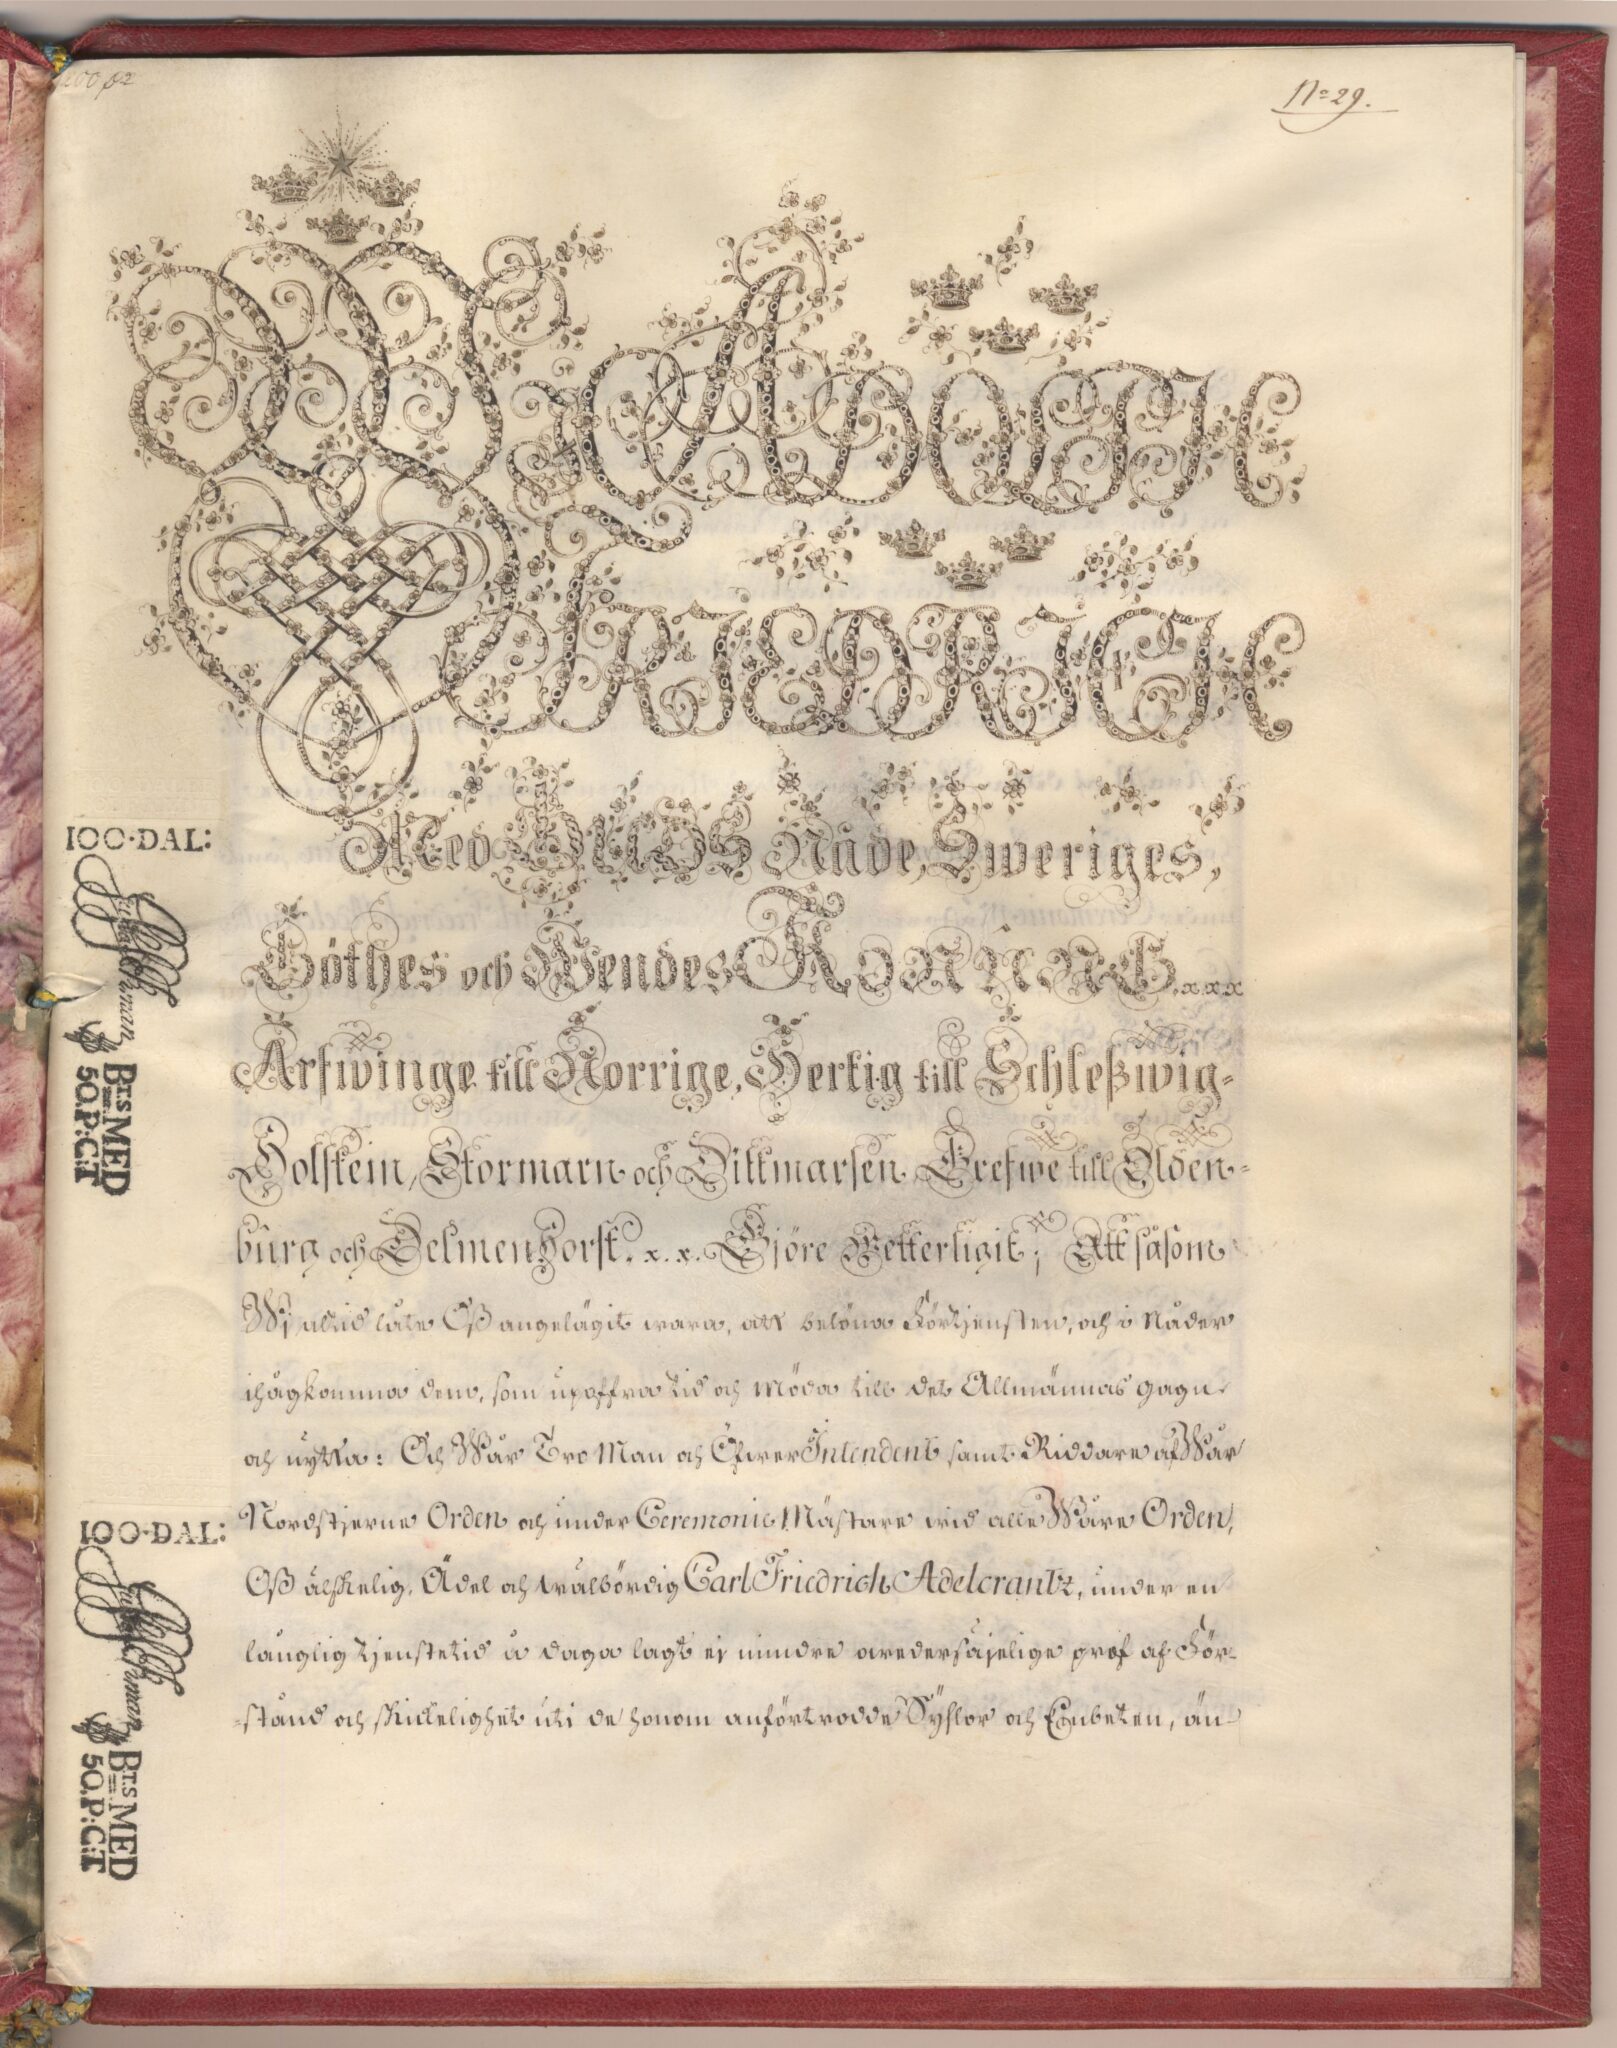 200 s2
No 29.
Wi ADOLPH
FRIEDRICH
Med GUDS Nåde, Sweriges,
Göthes och Wendes KONUNG, x.x.x
Arfwinge till Norrige, Hertig till Schleßwig-
Holstein, Stormarn och Dittmarsen, Grefwe till Olden-
burg och Delmenhorst. x. x. Giöre Wetterligit; Att såsom
Wi altid låte Oß angelägit wara, att belöna Förtjensten, och i Nåder
ihågkomma dem, som upoffra tid och Möda till det Allmännas gagn
och nytta: Och Wår Tro Man och Öfwer Intendent samt Riddare af Wår
Nordstjerne Orden och under Ceremonie Mästare wid alle Wåre Orden,
Oß älskelig, Ädel och wälbördig Carl Friedrich Adelcrantz, under en
långlig tjenstetid å daga lagt ej mindre wedersäjelige prof af För-
-stånd och skickelighet uti de honom anförtrodde Sÿslor och Embeten, än
100·DAL:
BT.S MED
50.P:C:T
100·DAL:
BT.S MED
50.P:C:T